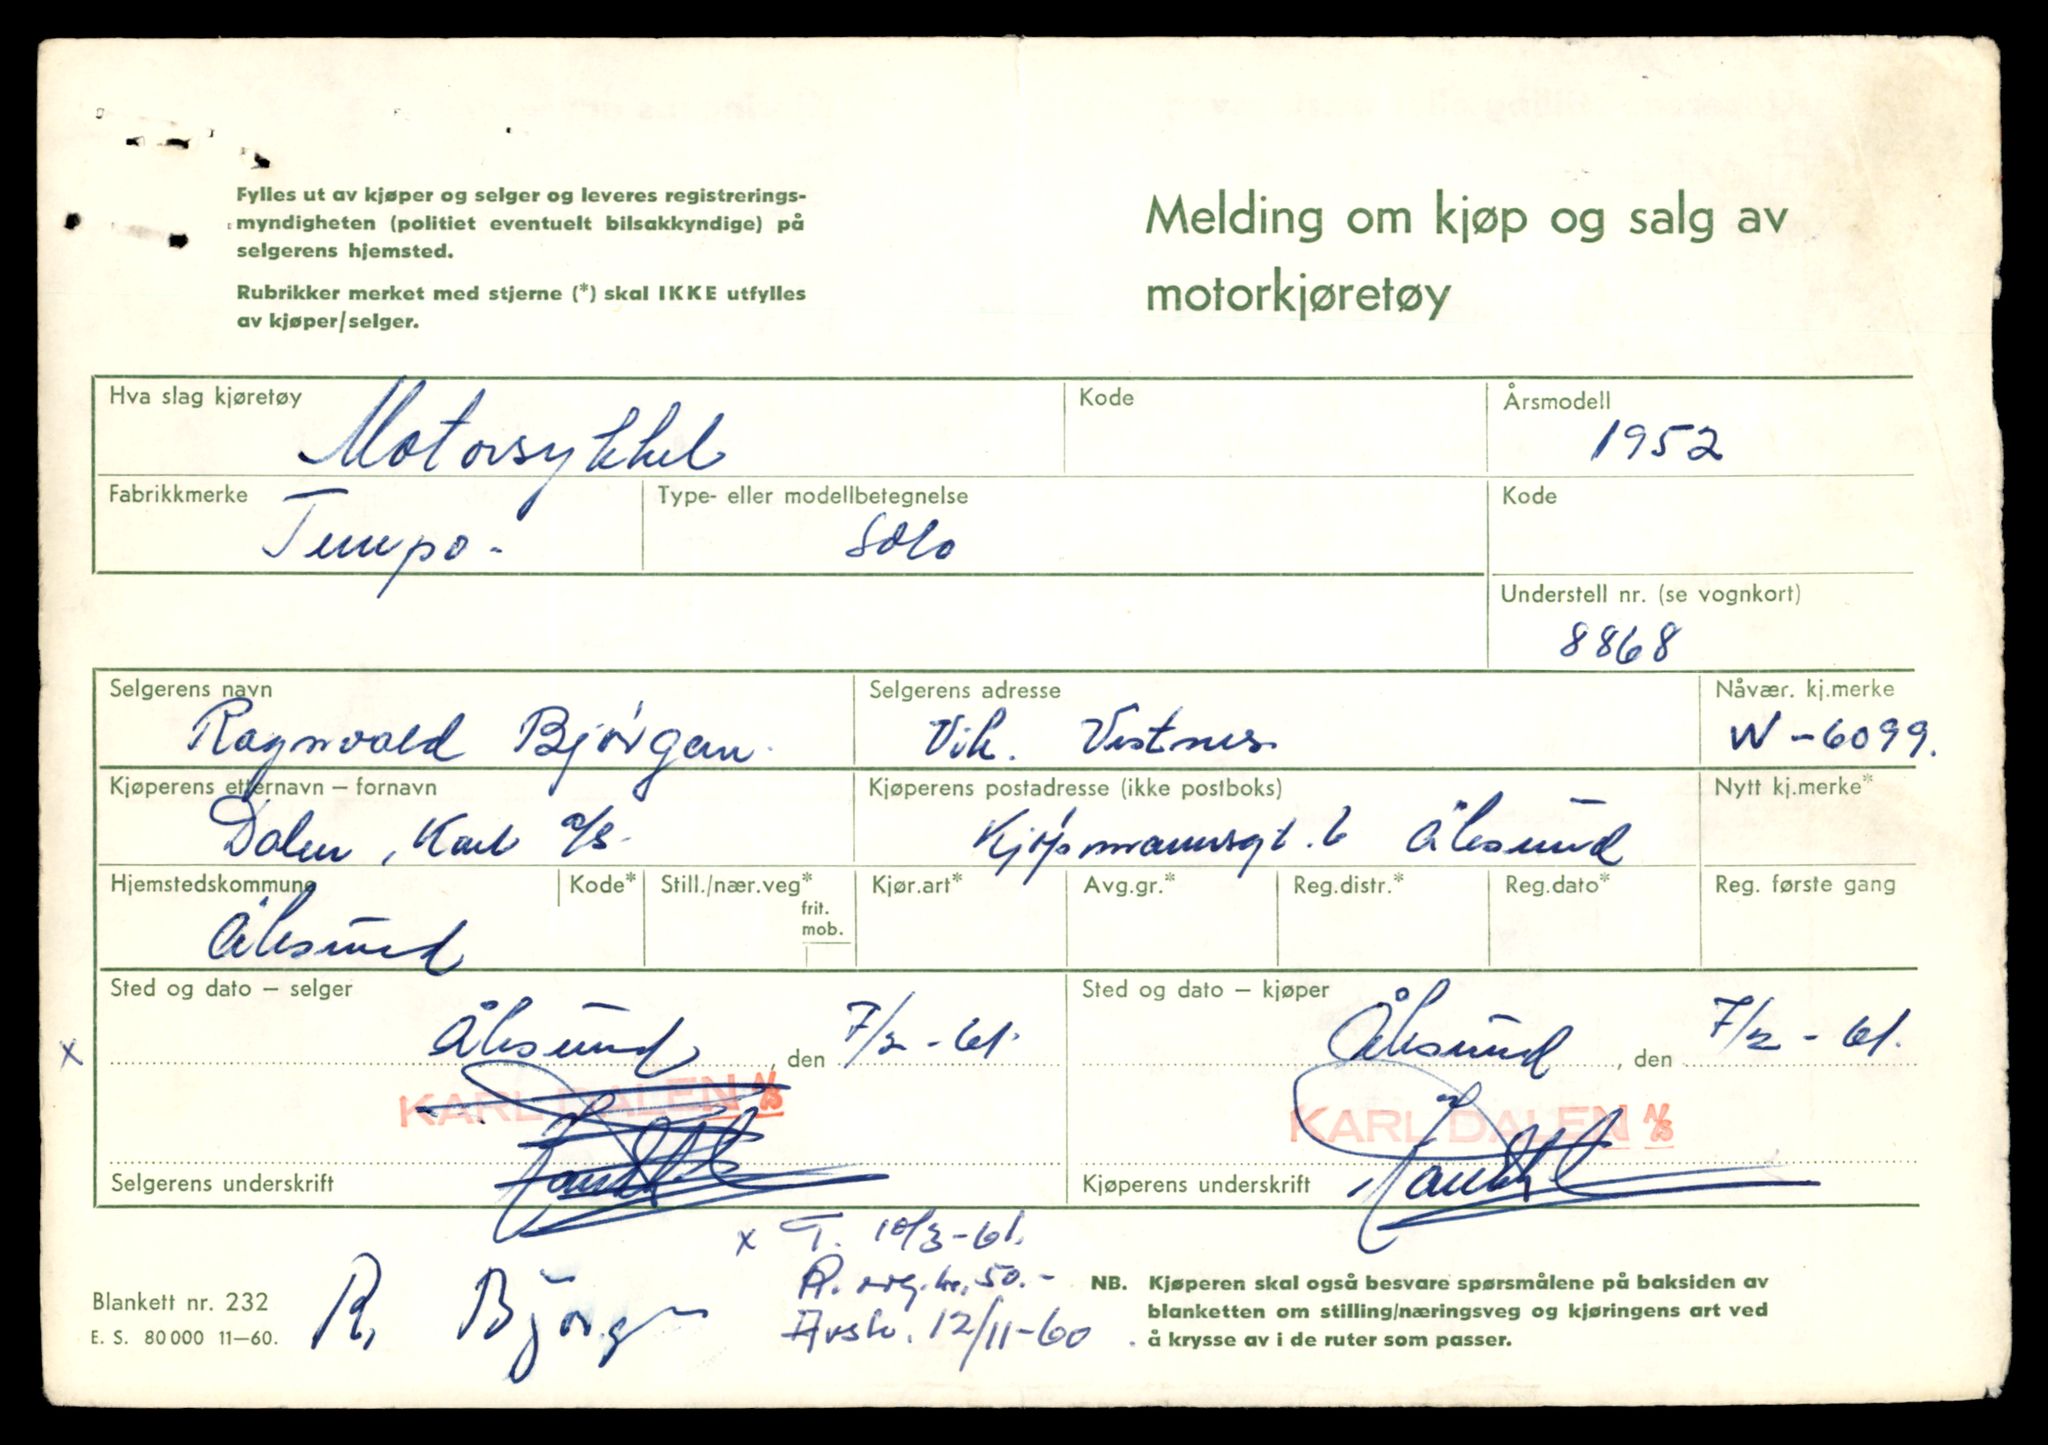 Fylles ut av kjøper og selger og leveres registrerings-
myndigheten (politiet eventuelt bilsakkyndige) på
selgerens hjemsted.
Rubrikker merket med stjerne (*) skal IKKE utfylles
av kjøper/selger.
Melding om kjøp og salg av
motorkjøretøy
Hva slag kjøretøy
Motorsykkel
Kode
Årsmodell
1952
Fabrikkmerke
Tempo-
Type- eller modellbetegnelse
Solo
Kode
Understell nr. (se vognkort)
8868
Selgerens navn
Ragnvald Bjørgan.
Selgerens adresse
Vik. Vestnes
Nåvær. kj.merke
W-6099.
Kjøperens etternavn – fornavn
Dalen, Karl A/S.
Kjøperens postadresse (ikke postboks)
Kjøpmannsgt. 6 Ålesund
Nytt kj.merke*
Hjemstedskommune
Ålesund
Kode*
Still./nær.veg*
frit.
mob.
Kjør.art*
Avg.gr.*
Reg.distr.*
Reg.dato*
Reg. første gang
Sted og dato – selger
x Ålesund, den 7/2-61.
KARL DALEN A/S
Selgerens underskrift
Sted og dato – kjøper
Ålesund, den 7/2-61.
KARL DALEN A/S
Kjøperens underskrift
x T. 10/3-61.
50.-
12/11-60
R. Bjørgan
Blankett nr. 232
E. S. 80 000 11–60.
NB. Kjøperen skal også besvare spørsmålene på baksiden av
blanketten om stilling/næringsveg og kjøringens art ved
å krysse av i de ruter som passer.